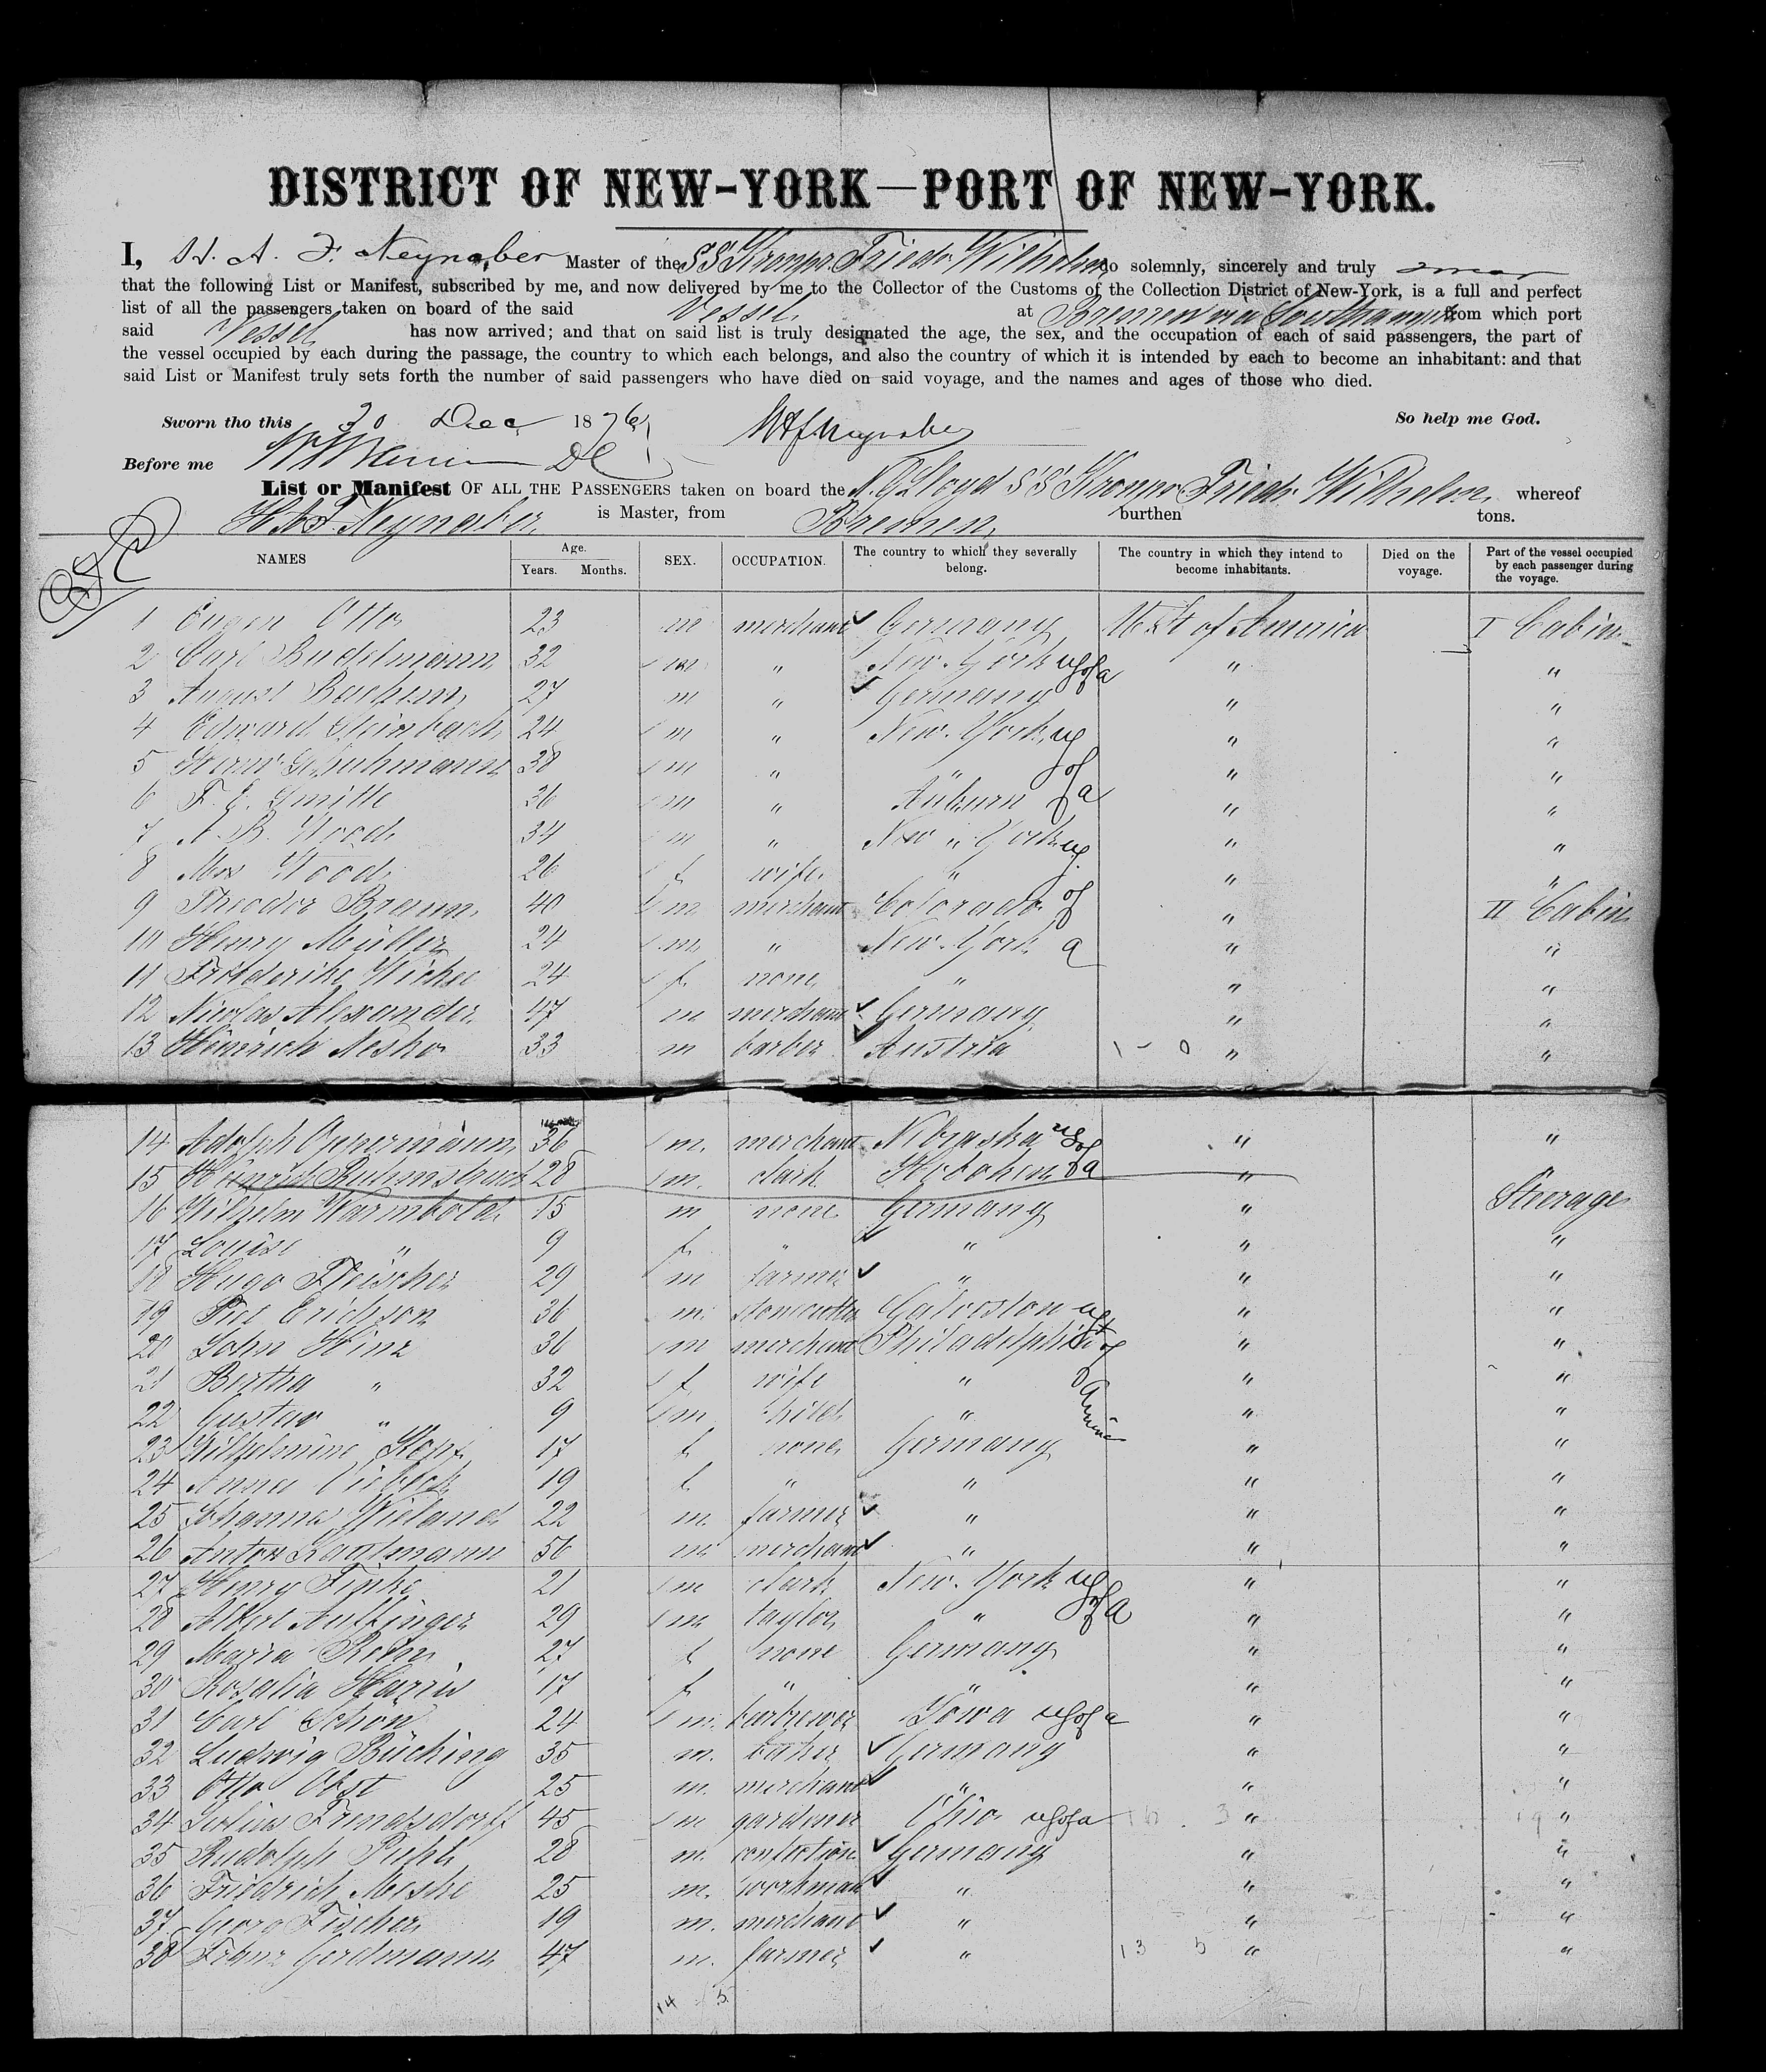 DISTRICT OF NEW-YORK—PORT OF NEW-YORK.
I, H. A. F. Neynaber Master of the SS Kronpr. Friedr. Wilhelm do solemnly, sincerely and truly swear
that the following List or Manifest, subscribed by me, and now delivered by me to the Collector of the Customs of the Collection District of New-York, is a full and perfect
list of all the passengers taken on board of the said Vessel at Bremen via Southampton from which port
said Vessel has now arrived; and that on said list is truly designated the age, the sex, and the occupation of each of said passengers, the part of
the vessel occupied by each during the passage, the country to which each belongs, and also the country of which it is intended by each to become an inhabitant: and that
said List or Manifest truly sets forth the number of said passengers who have died on said voyage, and the names and ages of those who died.
Sworn tho this 20 Dec 1876 HAFNeynaber So help me God.
Before me
List or Manifest OF ALL THE PASSENGERS taken on board the N. G. Lloyd SS Kronpr Friedr. Wilhelm whereof
H.A.F. Neynaber is Master, from Bremen burthen tons.
NAMES Age. Years. Months. SEX. OCCUPATION. The country to which they severally belong. The country in which they intend to become inhabitants. Died on the voyage. Part of the vessel occupied by each passenger during the voyage.
1 Eugen Otto 23 m merchant Germany U. St of America I Cabin
2 Carl Budelmann 32 m " New-York US of a " "
3 August 27 m " Germany " "
4 Edward Steinbach 24 m " New-York US " "
5 Schuhmann 38 m " " of " "
6 F. E. Smith 36 m " Auburn a " "
7 A. B. Wood 34 m " New-York US " "
8 Mrs Wood 26 f wife " " "
9 Theodor Braun 40 m merchant Colorado of " II Cabin
10 Henry Müller 24 m " New-York a " "
11 Friederike 24 f none " " "
12 Nicolas Alexander 47 m merchant Germany " "
13 Heinrich Nesko 33 m barber Austria 1 - 0 " "
14 Adolph Oppermann 36 m. merchant Nebraska US of " "
15 Heinrich 28 m. clark Hoboken a "
16 Wilhelm Warmbold 15 m none Germany " Steerage
17 Louise " 9 f " " " "
18 Hugo Fleischer 29 m farmer " " "
19 Erichson 36 m. stonecutter Galveston US " "
20 John Hinz 36 m merchant Philadelphia St of " "
21 Bertha " 32 f wife " America " "
22 Gustav " 9 m child " " "
23 Wilhelmine 17 f none Germany " "
24 Anna 19 f " " " "
25 Johannes Wieland 22 m. farmer " " "
26 Anton 56 m merchant " " "
27 Henry 21 m clark New-York US " "
28 Albert Aulfinger 29 m taylor " of a " "
29 Maria 27 f none Germany " "
30 Rosalia Harris 17 f " " " "
31 Carl Schön 24 m. Iowa US of a " "
32 Ludwig Büching 35 m. baker Germany " "
33 Otto Obst 25 m. merchant " " "
34 Julius 45 m gardener Ohio US of a " "
35 Rudolph 28 m. confection. Germany " "
36 Friedrich Meske 25 m. workman " " "
37 Georg Fischer 19 m. merchant " " "
38 Franz Gerdmann 47 m. farmer " 13 5 " "
14 5